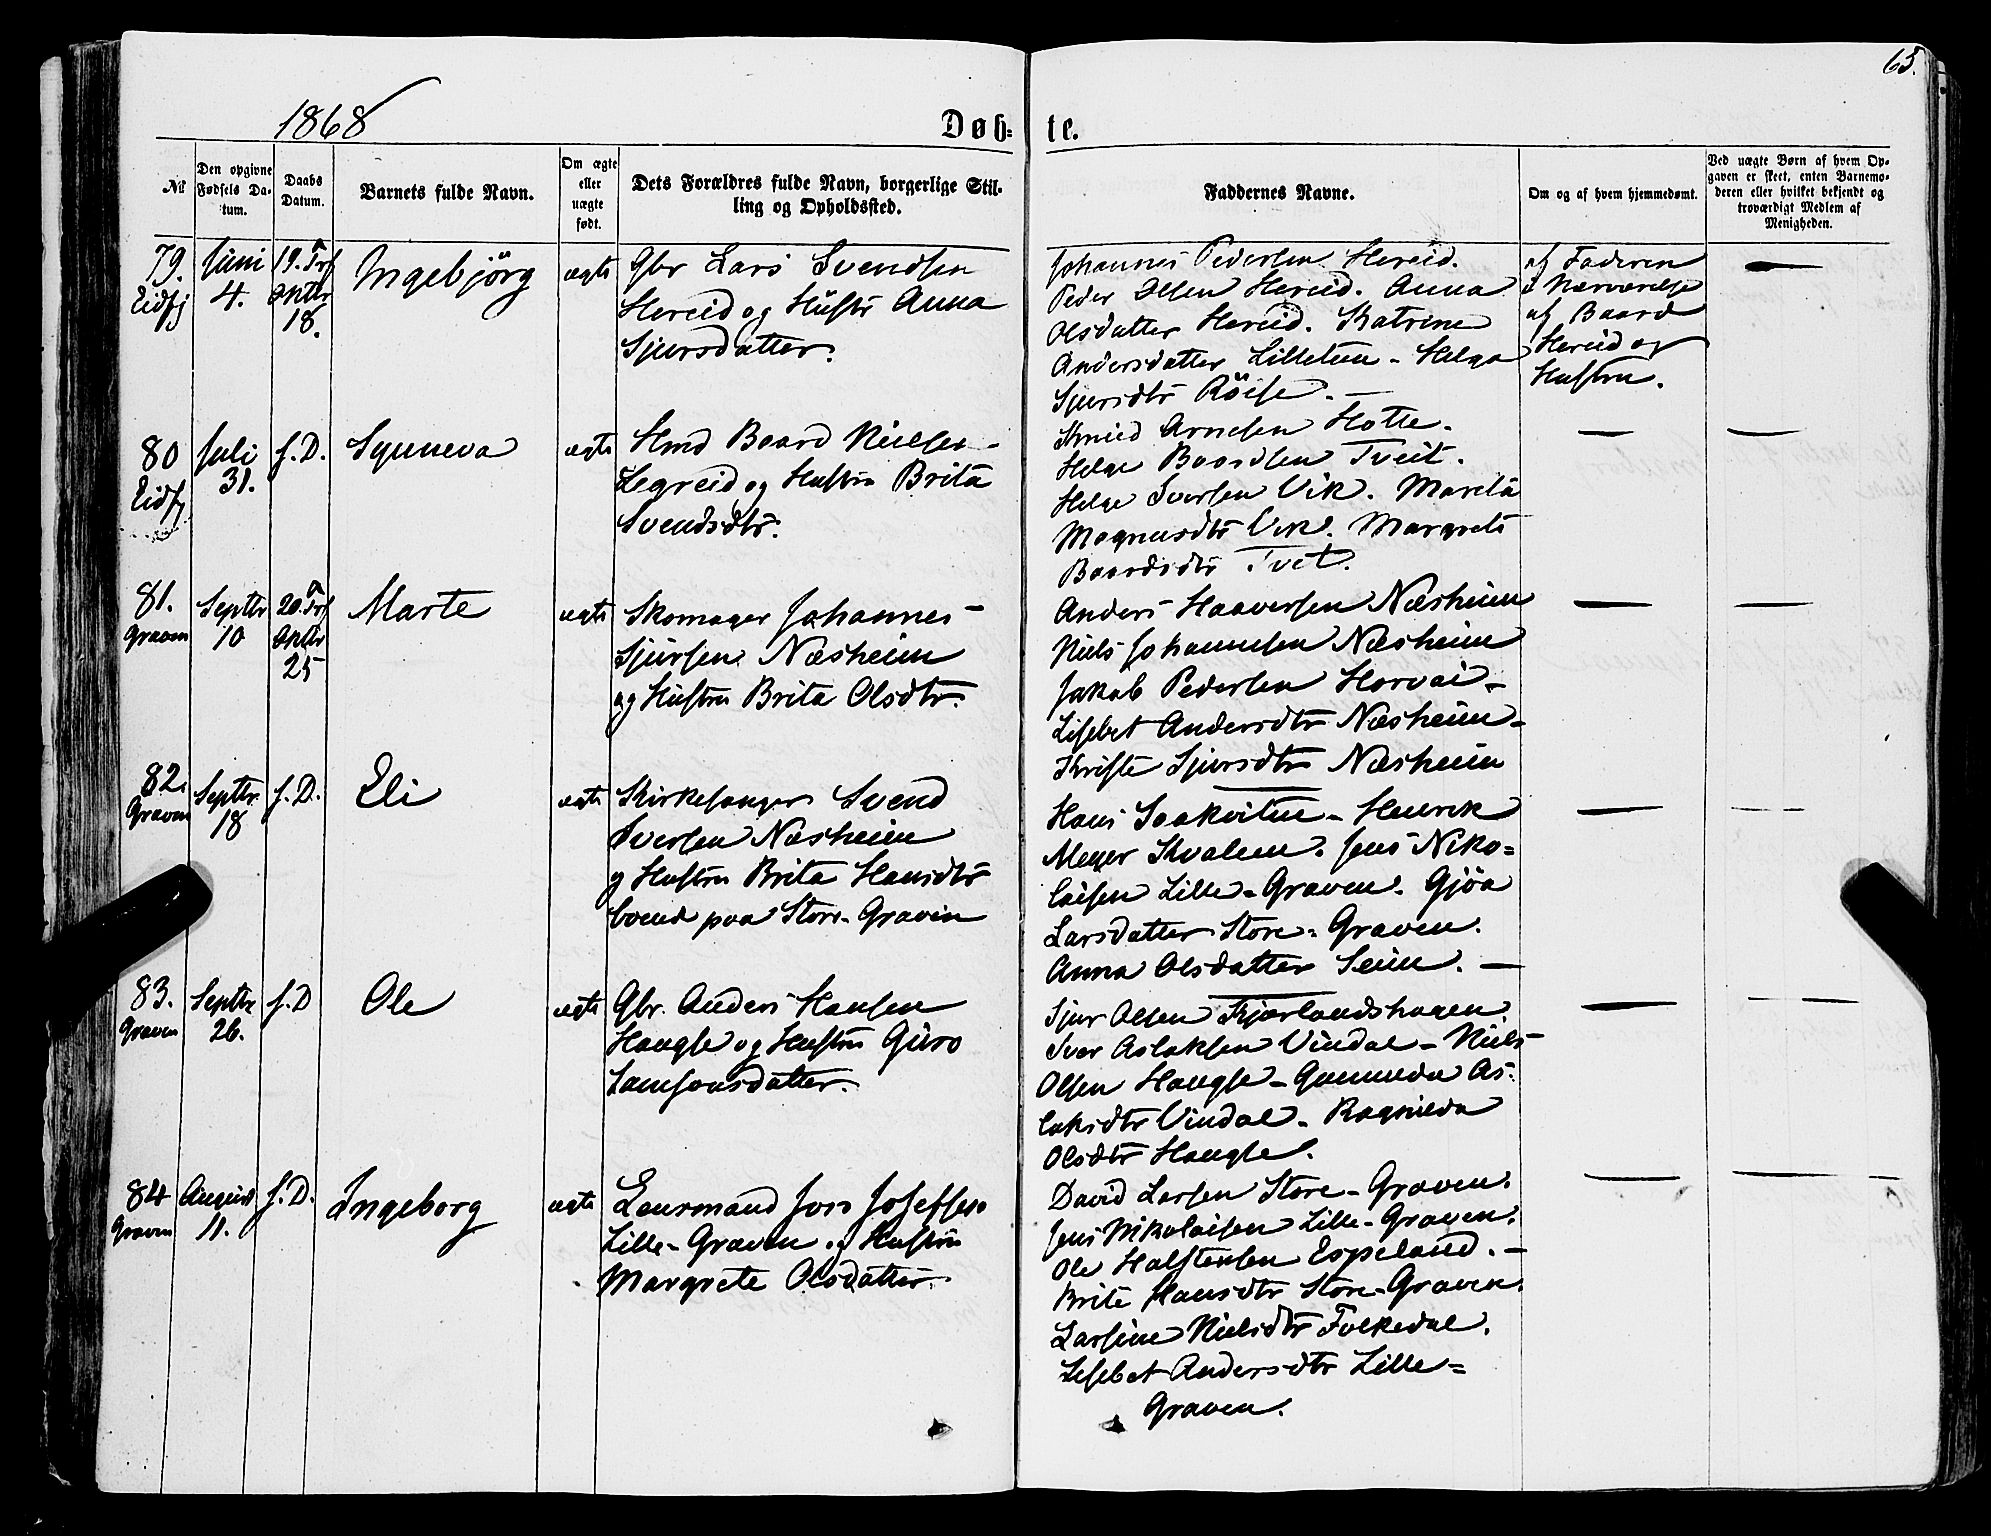 65.
1868
Døb- te.
№
Den opgivne Fødsels Datum.
Daabs Datum.
Barnets fulde Navn.
Om ægte eller uægte født.
Dets Forældres fulde Navn, borgerlige Stilling og Opholdssted.
Faddernes Navne.
Om og af hvem hjemmedøbt.
Ved uægte Børn af hvem Opgaven er skeet, enten Barnemoderen eller hvilket bekjendt og troværdigt Medlem af Menigheden.
79. Eidfj
Juni 4.
19. Trf Oktbr 18.
Ingebjörg
ægte
Gbr Lars Svendsen
Hereid og Hustr Anna
Sjursdatter.
Johannes Pedersen Hereid.
Peder Olsen Hereid. Anna
Olsdatter Hereid. Katrine
Andersdatter Lilletun - Helga
Sjursdtr Röise. —
af Faderen
i Nærværelse
af Baard
Hereid og
Hustru.
80 Eidfj
Juli 31.
f. D.
Synneva
ægte
Hmd Baard Nielsen
Legreid og Hustru Brita
Svendsdtr.
Knud Arnesen Hotle.
Helge Baardsen Tveit.
Helge Iversen Vik. Marita
Magnusdtr Vik. Margrete
Baardsdtr Tveit.
81. Graven
Septbr 10
20. Trf Oktbr 25
Marte
ægte
Skomager Johannes
Sjursen Næsheim
og Hustru Brita Olsdtr.
Anders Haaversen Næsheim
Niels Johannesen Næsheim
Jakob Pedersen Horvei -
Lisbet Andersdtr Næsheim -
Kriste Sjursdtr Næsheim
82. Graven
Septbr 18
f. D.
Eli
ægte
Kirkesanger Svend
Iversen Næsheim
og Hustru Brita Hansdtr
boende paa Store-Graven
Hans Saakvitne - Henrik
Meyer Kvalem. Jens Niko=
laisen Lille-Graven. Gjöa
Larsdatter Store-Graven.
Anna Olsdatter Seim. —
83. Graven
Septbr 26.
f. D
Ole
ægte
Gbr. Anders Hansen
Haugse og Hustru Guro
Lamsonsdatter.
Sjur Olsen Kjærlandshagen.
Iver Aslaksen Vindal - Niels
Olsen Haugse - Gunnilda As-
laksdtr Vindal - Ragnilda
Olsdtr Haugse.
84 Graven
August 11.
f. D.
Ingeborg
ægte
Leiermand Jon Josefsen
Lille-Graven og Hustru
Margrete Olsdatter.
David Larsen Store-Graven.
Jens Nikolaisen Lille-Graven.
Ole Halstensen Espeland. -
Brite Hansdtr Store-Graven.
Larsine Nielsdtr Folkedal.
Lisbet Andersdtr Lille=
Graven.